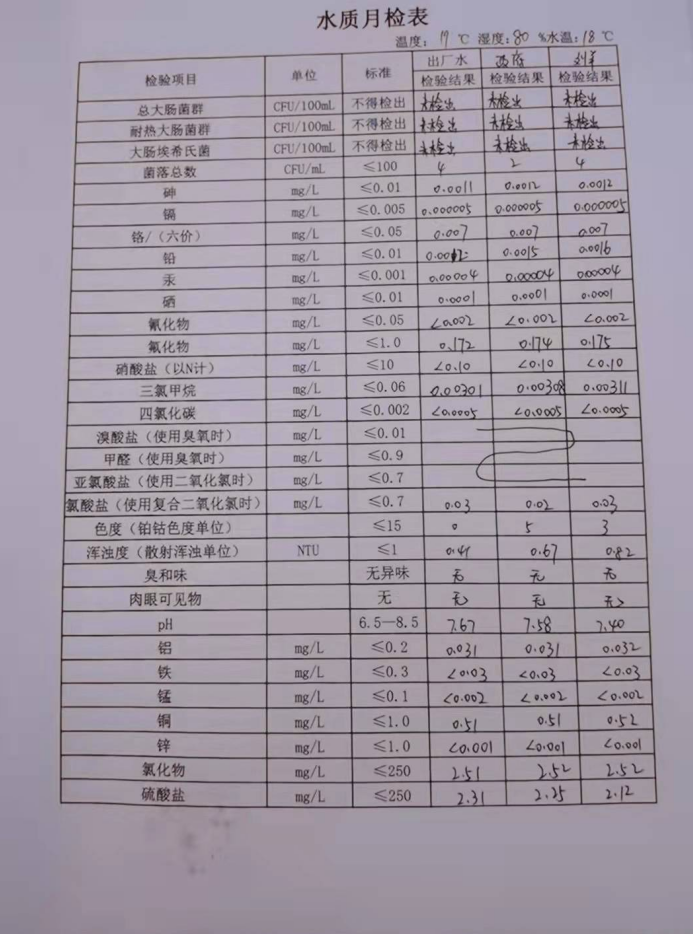 水质月检表
温度：17 ℃ 湿度：80 %水温：18 ℃
检验项目 单位 标准 出厂水
检验结果 检验结果 检验结果
总大肠菌群 CFU/100mL 不得检出 未检出 未检出 未检出
耐热大肠菌群 CFU/100mL 不得检出 未检出 未检出 未检出
大肠埃希氏菌 CFU/100mL 不得检出 未检出 未检出 未检出
菌落总数 CFU/mL ≤100 4 2 4
砷 mg/L ≤0.01 0.0011 0.0012 0.0012
镉 mg/L ≤0.005 0.000005 0.000005 0.000005
铬/（六价） mg/L ≤0.05 0.007 0.007 0.007
铅 mg/L ≤0.01 0.0015 0.0016
汞 mg/L ≤0.001 0.00004 0.00004 0.00004
硒 mg/L ≤0.01 0.0001 0.0001 0.0001
氰化物 mg/L ≤0.05 <0.002 <0.002 <0.002
氟化物 mg/L ≤1.0 0.172 0.174 0.175
硝酸盐（以N计） mg/L ≤10 <0.10 <0.10 <0.10
三氯甲烷 mg/L ≤0.06 0.00301 0.00308 0.00311
四氯化碳 mg/L ≤0.002 <0.0005 <0.0005 <0.0005
溴酸盐（使用臭氧时） mg/L ≤0.01
甲醛（使用臭氧时） mg/L ≤0.9
亚氯酸盐（使用二氧化氯时） mg/L ≤0.7
氯酸盐（使用复合二氧化氯时） mg/L ≤0.7 0.03 0.02 0.03
色度（铂钴色度单位） ≤15 0 5 3
浑浊度（散射浑浊单位） NTU ≤1 0.41 0.67 0.82
臭和味 无异味 无 无 无
肉眼可见物 无 无 无 无
pH 6.5—8.5 7.67 7.58 7.40
铝 mg/L ≤0.2 0.031 0.031 0.032
铁 mg/L ≤0.3 <0.03 <0.03 <0.03
锰 mg/L ≤0.1 <0.002 <0.002 <0.002
铜 mg/L ≤1.0 0.51 0.51 0.52
锌 mg/L ≤1.0 <0.001 <0.001 <0.001
氯化物 mg/L ≤250 2.51 2.52 2.52
硫酸盐 mg/L ≤250 2.31 2.25 2.12